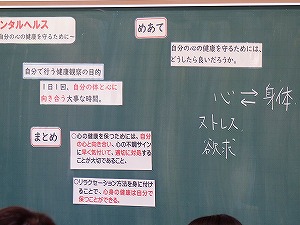 ンタルヘルス
自分の心の健康を守るために～
めあて
自分の心の健康を守るためには、
どうしたら良いだろうか。
自分で行う健康観察の目的
１日１回、自分の体と心に
向き合う大事な時間。
心 ⇄ 身体
ストレス
欲求
まとめ
○心の健康を保つためには、自分
の心と向き合い、心の不調サイン
に早く気付いて、適切に対処する
ことが大切であること。
○リラクセーション方法を身に付け
ることで、心身の健康は自分で
保つことができる。